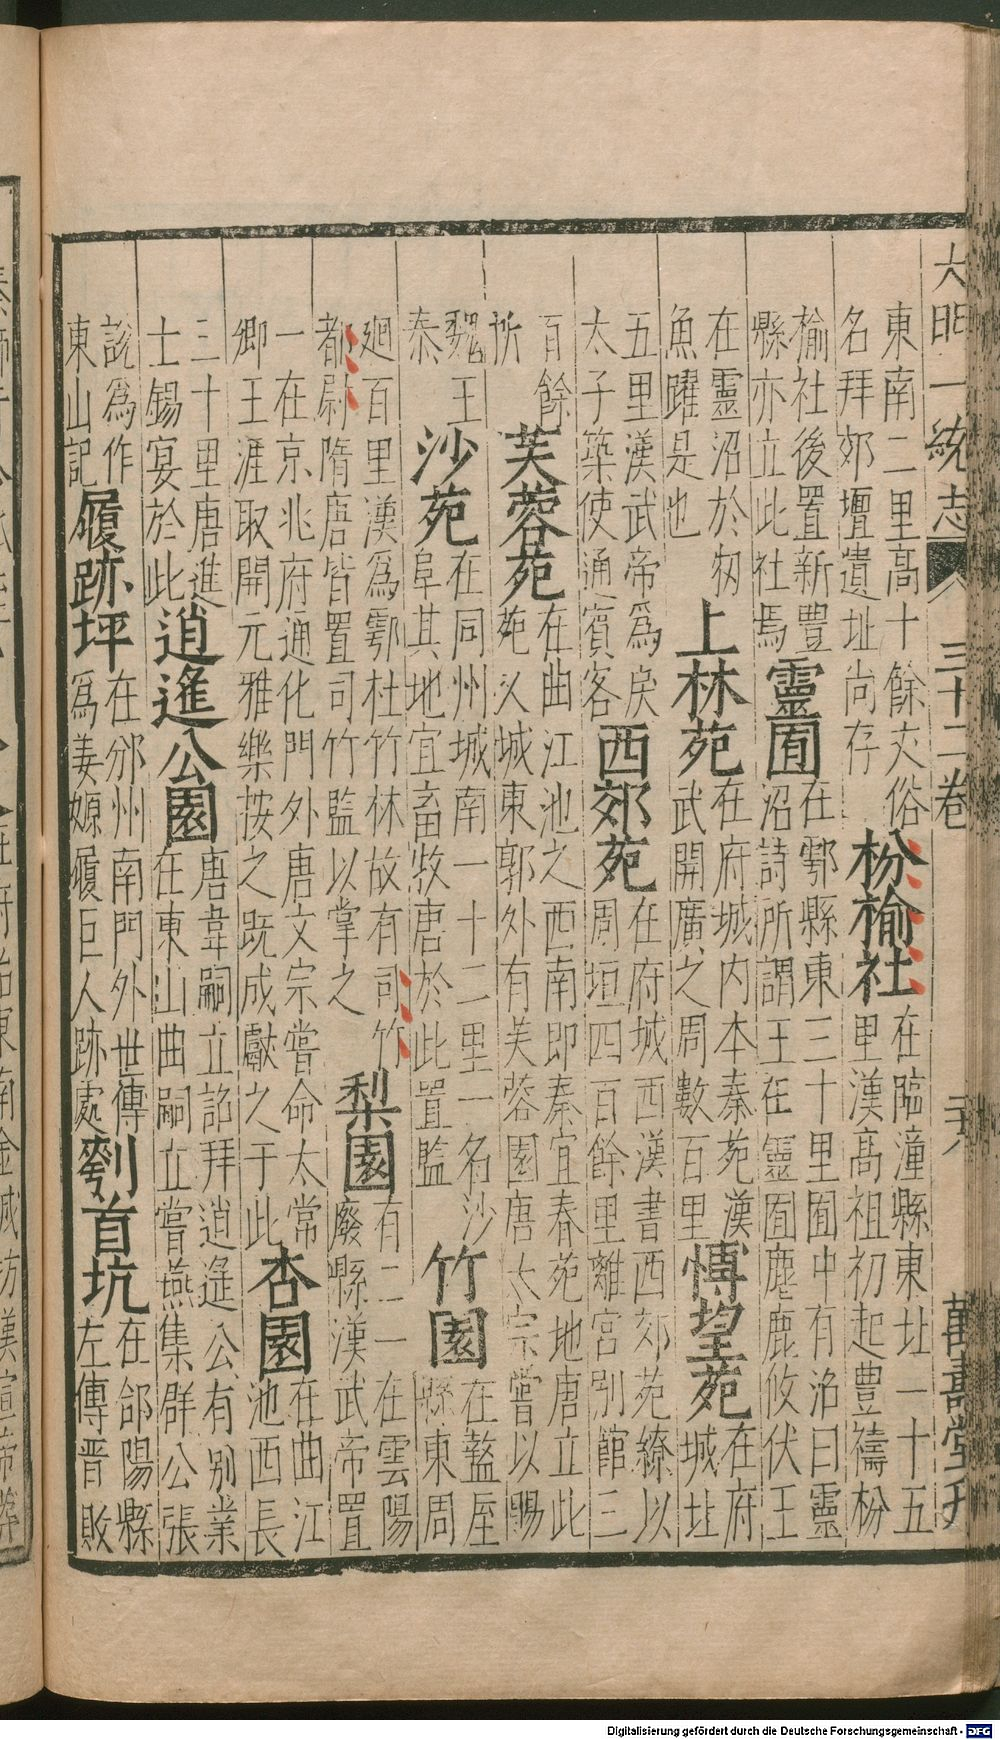 大明一統志 三十二卷 六 萬壽堂刊
東南二里高十餘丈俗
名拜郊壇遺址尚存
枌榆社
在臨潼縣東北一十五
里漢高祖初起豐禱枌
榆社後置新豐
縣亦立此社焉
靈囿
在鄠縣東三十里囿中有沼曰靈
沼詩所謂王在靈囿麀鹿攸伏王
在靈沼於牣
魚躍是也
上林苑
在府城内本秦苑漢
武開廣之周數百里
博望苑
在府
城北
五里漢武帝爲戾
太子築使通賓客
西郊苑
在府城西漢書西郊苑繚以
周垣四百餘里離宮別館三
百餘
所
芙蓉苑
在曲江池之西南即秦宜春苑地唐立此
苑以城東郭外有芙蓉園唐太宗嘗以賜
魏王
泰
沙苑
在同州城南一十二里一名沙
阜其地宜畜牧唐於此置監
竹園
在盩厔
縣東周
廻百里漢爲鄠杜竹林故有司竹
都尉隋唐皆置司竹監以掌之
梨園
有二一在雲陽
廢縣漢武帝置
一在京兆府通化門外唐文宗嘗命太常
卿王涯取開元雅樂按之既成獻之于此
杏園
在曲江
池西長
三十里唐進
士錫宴於此
逍遙公園
唐韋嗣立詔拜逍遙公有別業
在東山曲嗣立嘗燕集群公張
說爲作
東山記
履跡坪
在邠州南門外世傳
爲姜嫄履巨人跡處
劉首坑
在郃陽縣
左傳晉敗
Digitalisierung gefördert durch die Deutsche Forschungsgemeinschaft - DFG